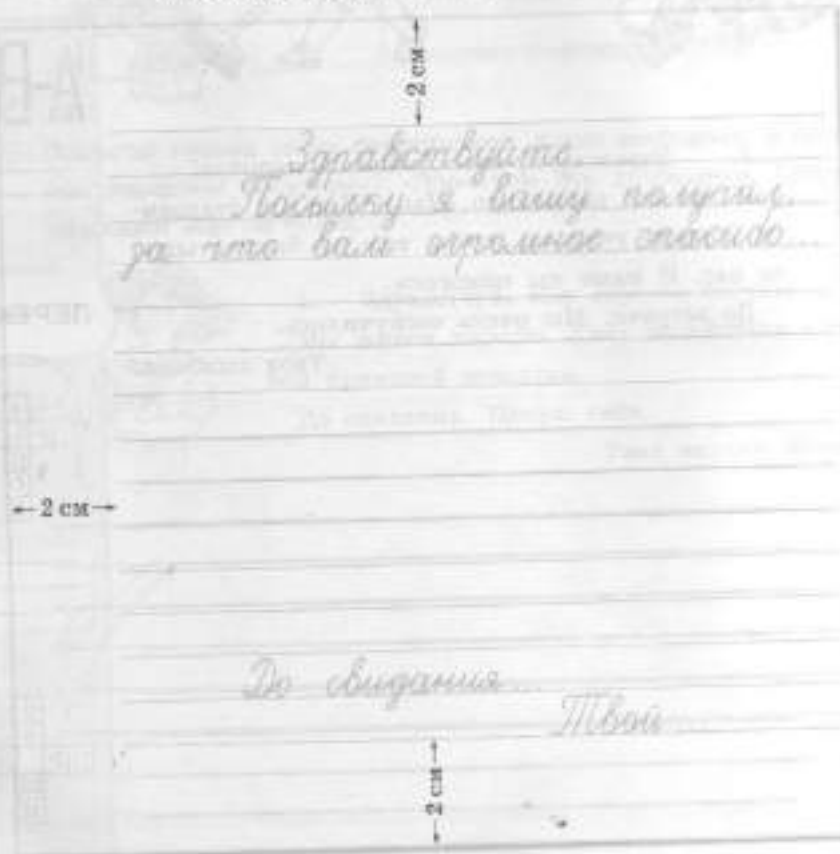 2 см
Здравствуйте.
Посылку я вашу получил,
за что вам огромное спасибо...
2 см
До свидания...
Твой
2 см